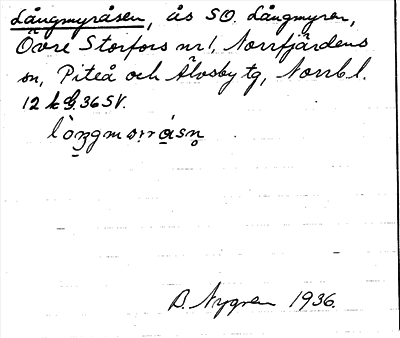 Långmyråsen, ås SO. Långmyran,
Övre Storfors nr 1, Norrfjärdens
sn, Piteå och Älvsby tg, Norrb. l.
12 36 SV.
B. Nygren 1936.